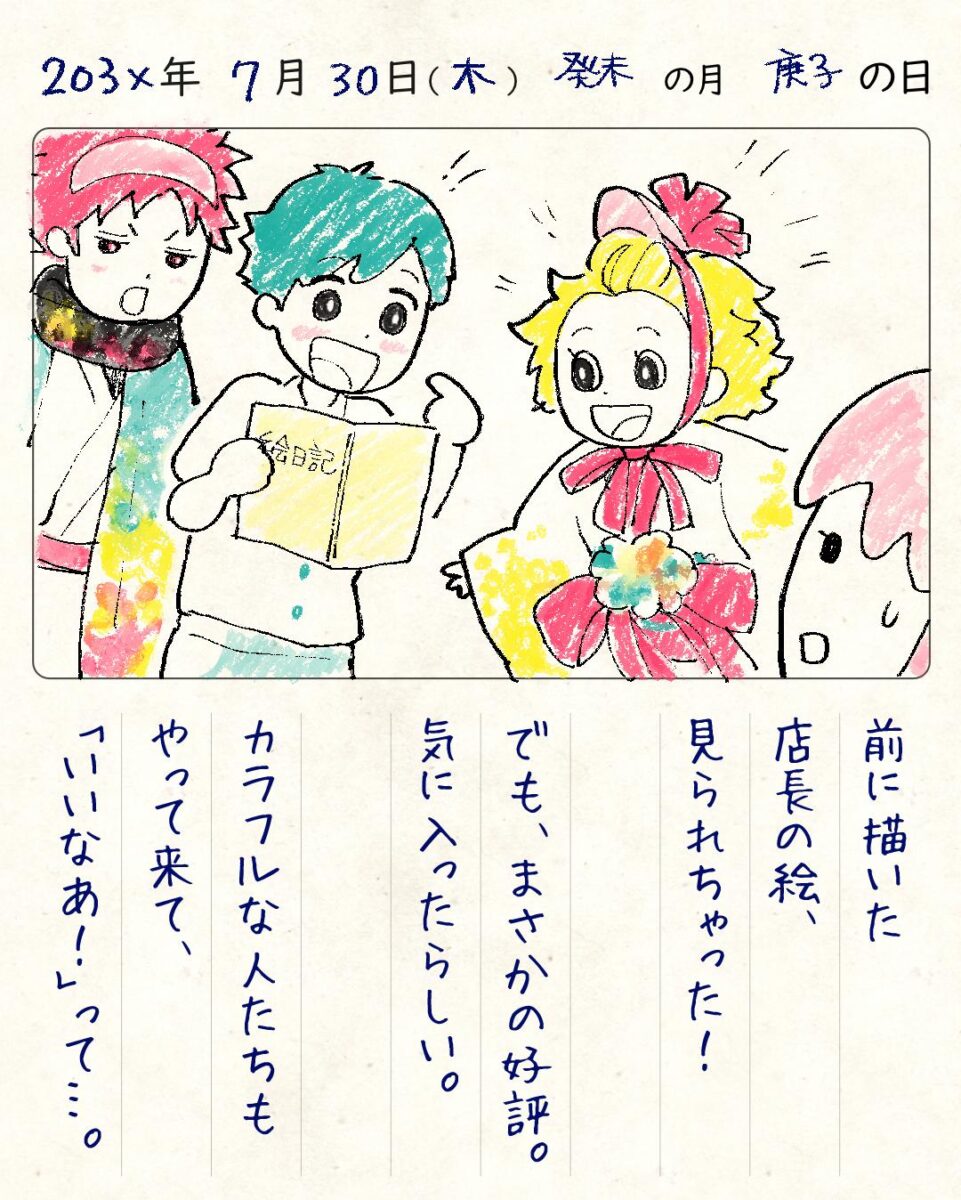 203×年 7月 30日(木) 癸未の月 庚子の日
絵日記
前に描いた
店長の絵、
見られちゃった!
でも、まさかの好評。
気に入ったらしい。
カラフルな人たちも
やって来て、
「いいなあ!」って…。